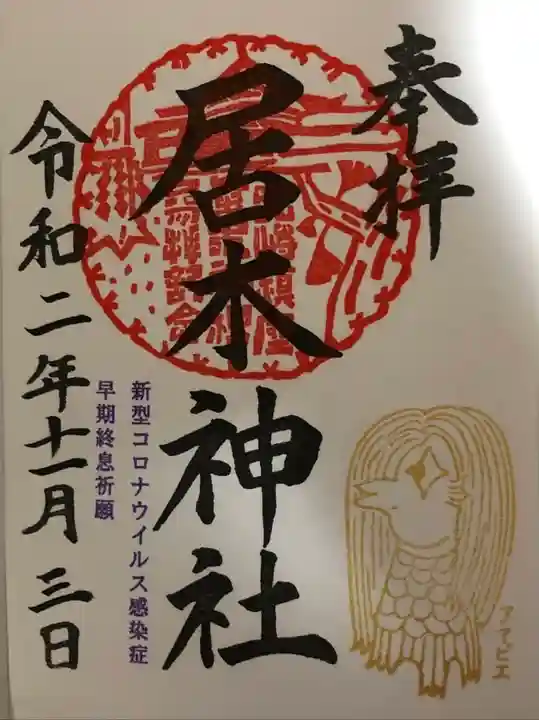 奉拝
居木神社
新型コロナウイルス感染症
早期終息祈願
令和二年十一月三日
アマビエ